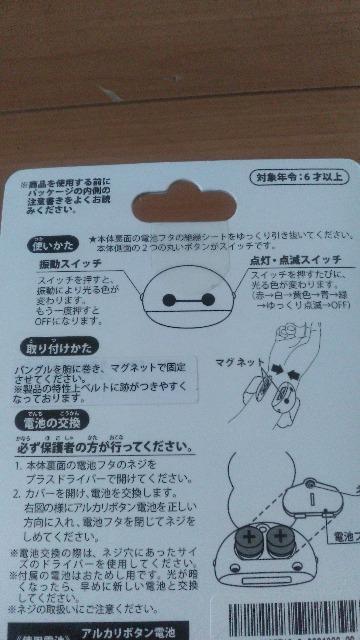 ※商品を使用する前に
パッケージの内側の
注意書きをよくお読
みください。
対象年令:6才以上
使いかた
★本体裏面の電池フタの絶縁シートをゆっくり引き抜いてください。
本体側面の2つの丸いボタンがスイッチです。
振動スイッチ
スイッチを押すと、
振動により光る色が
変わります。
もう一度押すと
OFFになります。
点灯・点滅スイッチ
スイッチを押すたびに、
光る色が変わります。
(赤→白→黄色→青→緑
→ゆっくり点滅→OFF)
取り付けかた
バングルを腕に巻き、マグネットで固定
させてください。
※製品の特性上ベルトに跡がつきやすく
なっております。
マグネット
電池の交換
必ず保護者の方が行ってください。
1. 本体裏面の電池フタのネジを
プラスドライバーで開けてください。
2. カバーを開け、電池を交換します。
右図の様にアルカリボタン電池を正しい
方向に入れ、電池フタを閉じてネジを
しめてください。
※電池交換の際は、ネジ穴にあったサイ
ズのドライバーを使用してください。
※付属の電池はおためし用です。光が暗
くなったら、早めに新しい電池と交換
してください。
※ネジの取扱いにご注意ください。
電池フ
アルカリボタン電池